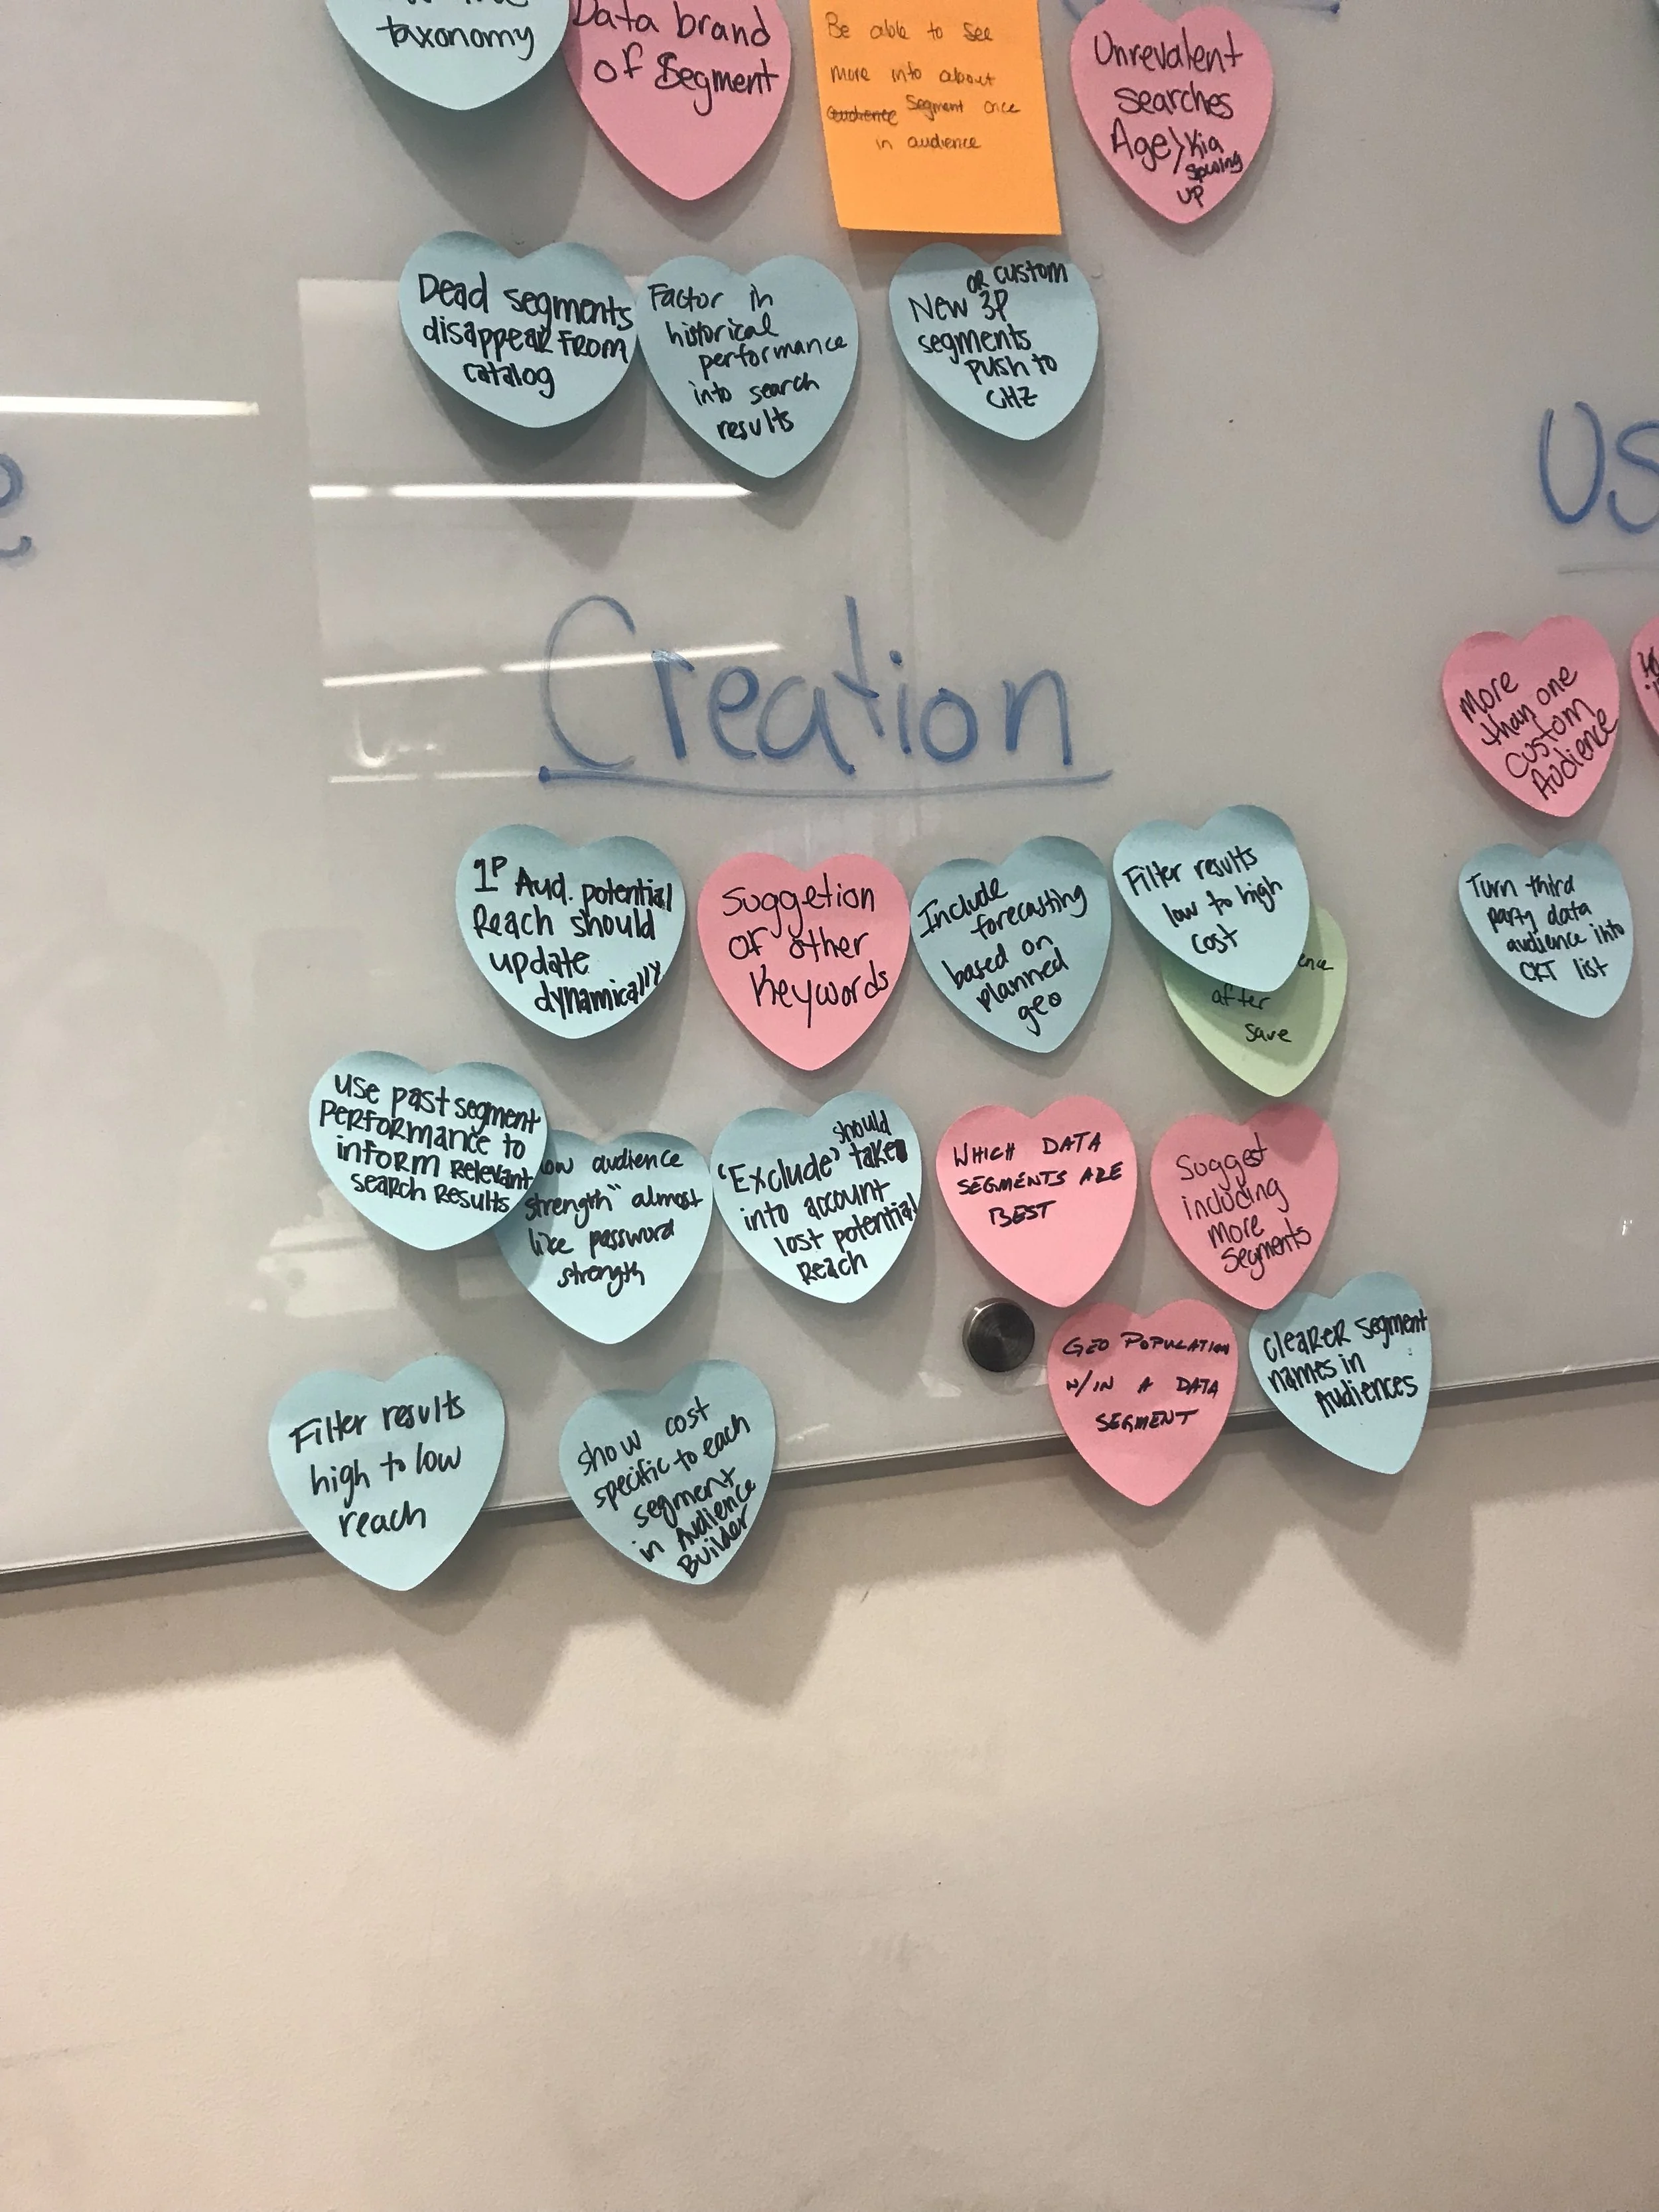 taxonomy
Data brand
of Segment
Be able to see
more into about
Segment once
in audience
Unrevalent
searches
Age/Kia
up
Dead segments
disappear from
catalog
Factor in
historical
performance
into search
results
or custom
New 3P
segments
push to
CHZ
Creation
1P Aud. potential
Reach should
update
dynamically
Suggetion
of other
Keywords
Include
forecasting
based on
planned
geo
Filter results
low to high
cost
after
save
More
than one
Custom
Audience
Turn third
party data
audience into
CRT list
use past segment
performance to
inform relevant
search results
audience
strength" almost
like password
strength
should
"Exclude" take
into account
lost potential
Reach
WHICH DATA
SEGMENTS ARE
BEST
Suggest
including
more
Segments
GEO POPULATION
W/IN A DATA
SEGMENT
clearer segment
names in
Audiences
Filter results
high to low
reach
show cost
specific to each
segment
in Audience
Builder